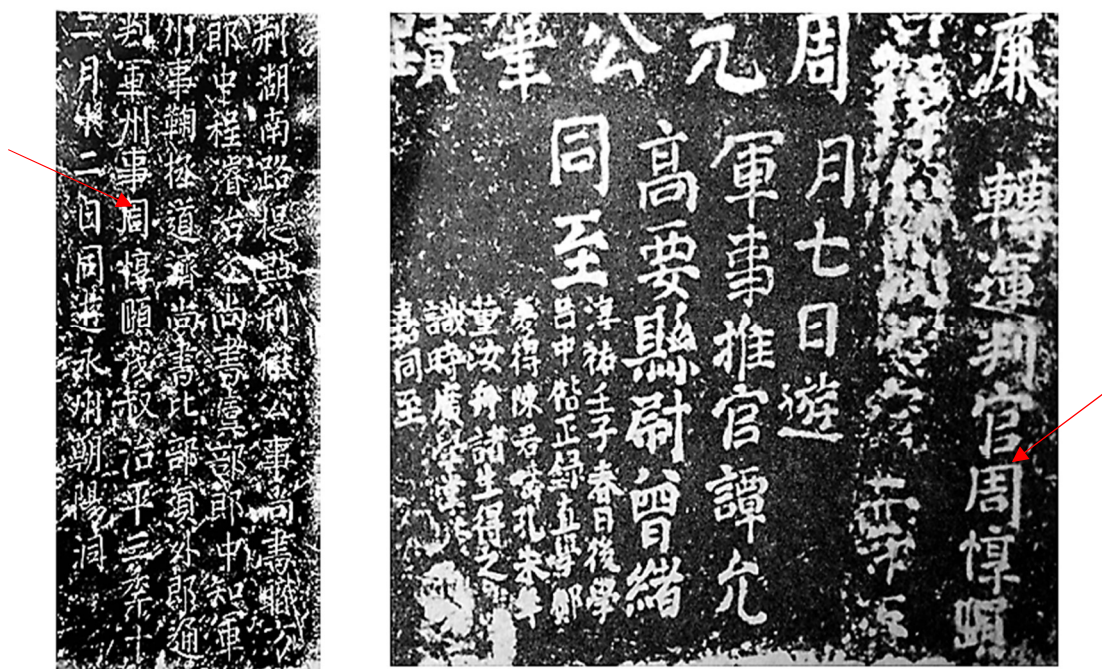 荆湖南路提點刑獄公事尚書職方
郎中程濬治之尚書虞部郎中知軍
州事鞠拯道濟尚書比部員外郎通
判軍州事周惇頤茂叔治平三秊十
二月十二日同遊永州朝陽洞
濂周元公筆蹟
轉運判官周惇頤
月七日遊
軍事推官譚允
高要縣尉曾緒
同至
淳祐壬子春日後學
呂中偕正錄直學鄭
夢得陳君
董汝舟諸生得之
識時廣學
同至